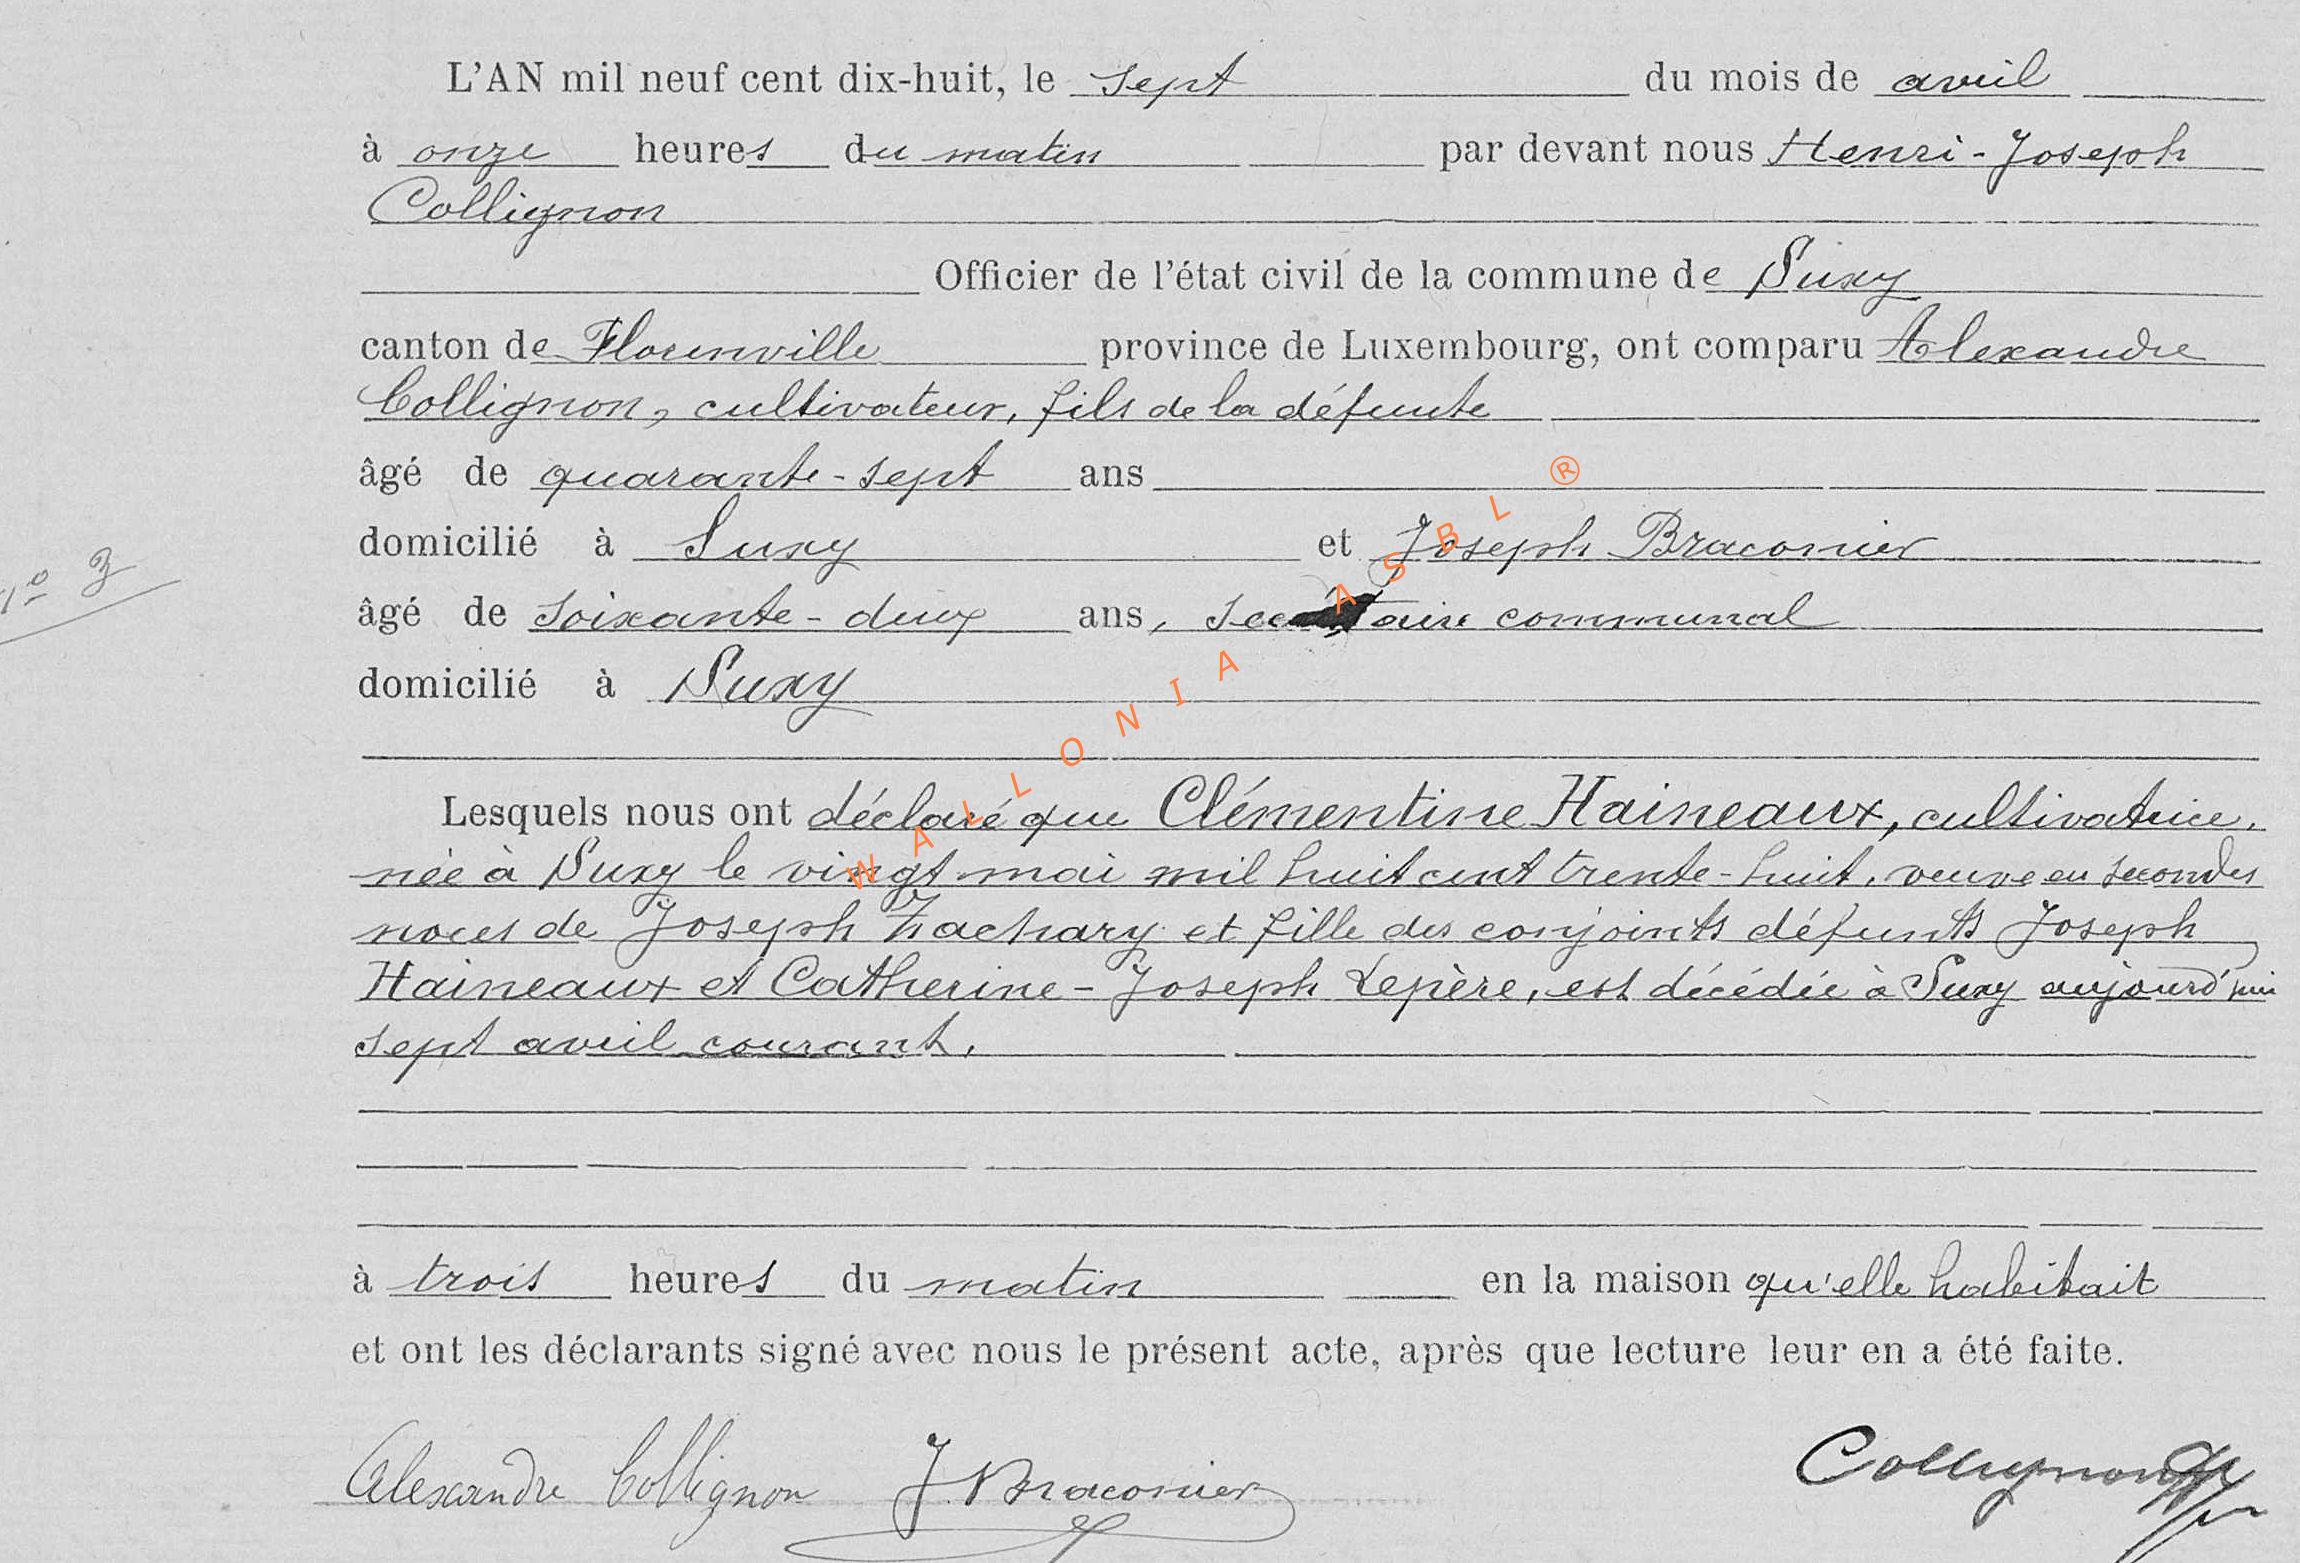 L'AN mil neuf cent dix-huit, le sept du mois de avril
à onze heures du matin par devant nous Henri-Joseph
Collignon
Officier de l'état civil de la commune de Suxy
canton de Florenville province de Luxembourg, ont comparu Alexandre
Collignon, cultivateur, fils de la défunte
âgé de quarante-sept ans
domicilié à Suxy et Joseph Braconier
N° 3
âgé de soixante-deux ans, secrétaire communal
domicilié à Suxy
Lesquels nous ont déclaré que Clémentine Haineaux, cultivatrice,
née à Suxy le vingt mai mil huit cent trente-huit, veuve en secondes
noces de Joseph Zachary et fille des conjoints défunts Joseph
Haineaux et Catherine-Joseph Lepère, est décédée à Suxy aujourd'hui
sept avril courant,
à trois heures du matin en la maison qu'elle habitait
et ont les déclarants signé avec nous le présent acte, après que lecture leur en a été faite.
Alexandre Collignon J. Braconier Collignon
WALLONIA ASBL ®